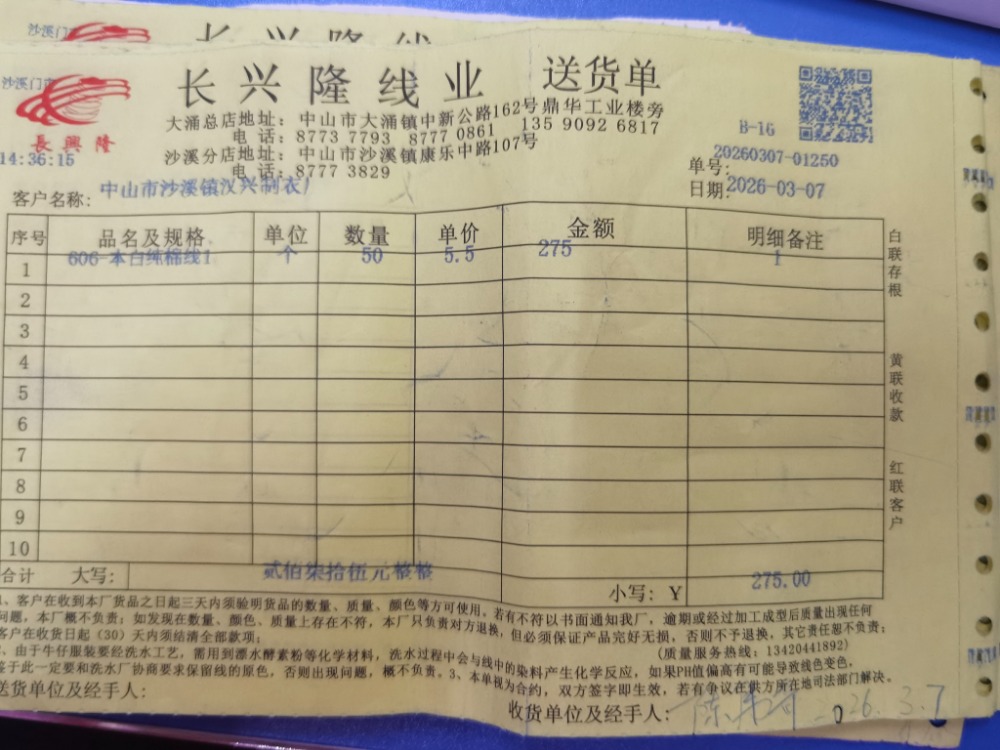 沙溪门
长兴隆线
沙溪门市
長興隆
长兴隆线业 送货单
大涌总店地址: 中山市大涌镇中新公路162号鼎华工业楼旁
电 话: 8773 7793 8777 0861 135 9092 6817
沙溪分店地址: 中山市沙溪镇康乐中路107号
电 话: 8777 3829
B-16
14:36:15
单号: 20260307-01250
日期: 2026-03-07
客户名称: 中山市沙溪镇汉兴制衣厂
序号 品名及规格 单位 数量 单价 金额 明细备注
1 606-本白纯棉线1 个 50 5.5 275 1
2
3
4
5
6
7
8
9
10
合计 大写: 贰佰柒拾伍元整整 小写: Y 275.00
白联存根
黄联收款
红联客户
1、客户在收到本厂货品之日起三天内须验明货品的数量、质量、颜色等方可使用。若有不符以书面通知我厂, 逾期或经过加工成型后质量出现任何
问题, 本厂概不负责; 如发现在数量、颜色、质量上存在不符, 本厂只负责对方退换, 但必须保证产品完好无损, 否则不予退换, 其它责任恕不负责;
客户在收货日起(30)天内须结清全部款项; (质量服务热线: 13420441892)
、由于牛仔服装要经洗水工艺, 需用到漂水酵素粉等化学材料, 洗水过程中会与线中的染料产生化学反应, 如果PH值偏高有可能导致线色变,
鉴于此一定要和洗水厂协商要求保留线的原色, 否则出现问题, 概不负责。3、本单视为合约, 双方签字即生效, 若有争议在供方所在地司法部门解决。
送货单位及经手人:
收货单位及经手人: 2026.3.7